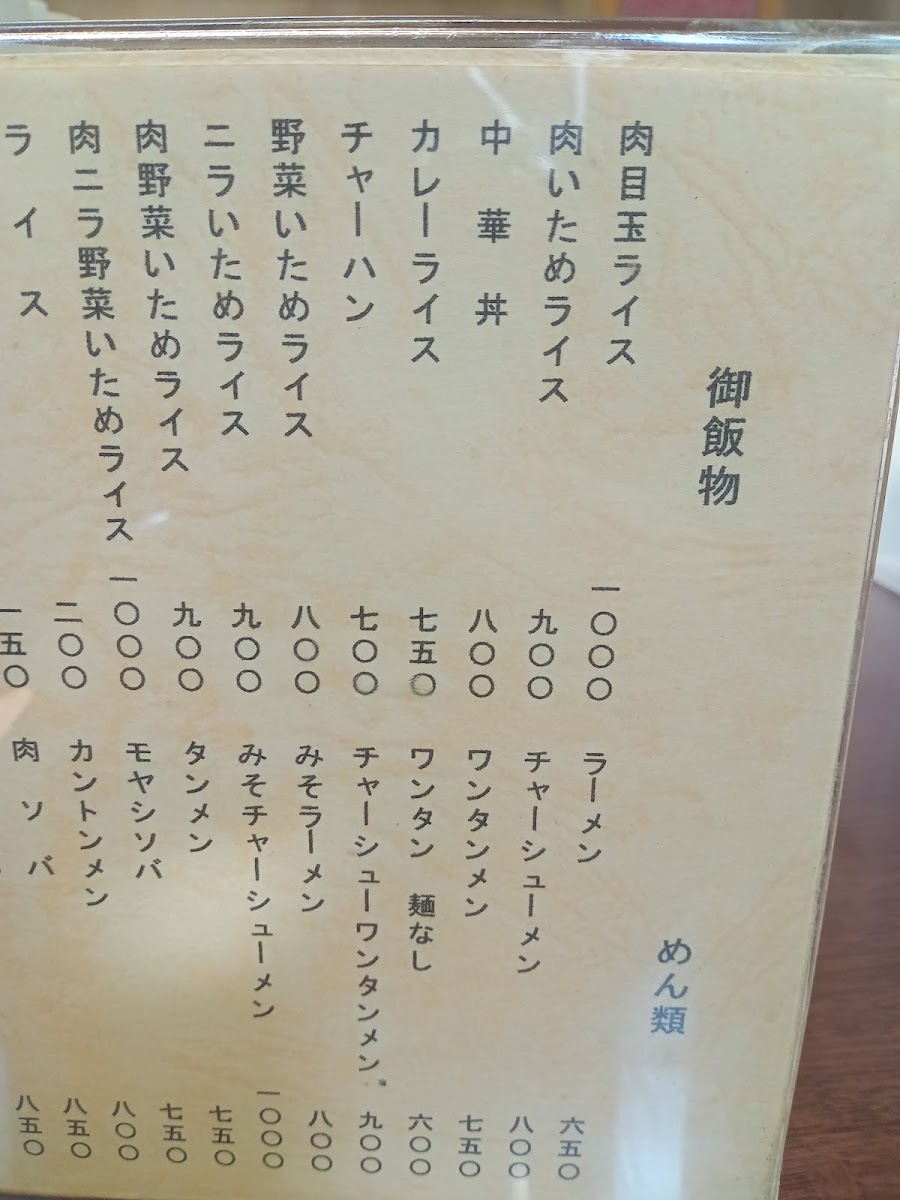 御飯物
肉目玉ライス 一〇〇〇
肉いためライス 九〇〇
中華丼 八〇〇
カレーライス 七五〇
チャーハン 七〇〇
野菜いためライス 八〇〇
ニラいためライス 九〇〇
肉野菜いためライス 九〇〇
肉ニラ野菜いためライス 一〇〇〇
ライス 二〇〇
一五〇
めん類
ラーメン 六五〇
チャーシューメン 八〇〇
ワンタンメン 七五〇
ワンタン 麺なし 六〇〇
チャーシューワンタンメン 九〇〇
みそラーメン 八〇〇
みそチャーシューメン 一〇〇〇
タンメン 七五〇
モヤシソバ 七五〇
カントンメン 八〇〇
肉ソバ 八五〇
八五〇